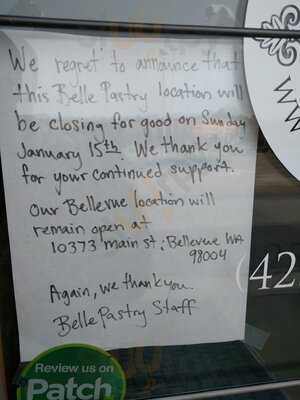 We regret to announce that
this Belle Pastry location will
be closing for good on Sunday
January 15th. We thank you
for your continued support.
Our Bellevue location will
remain open at
10373 main st; Bellevue WA
98004
Again, we thank you.
Belle Pastry Staff
WW
(42
Review us on
Patch